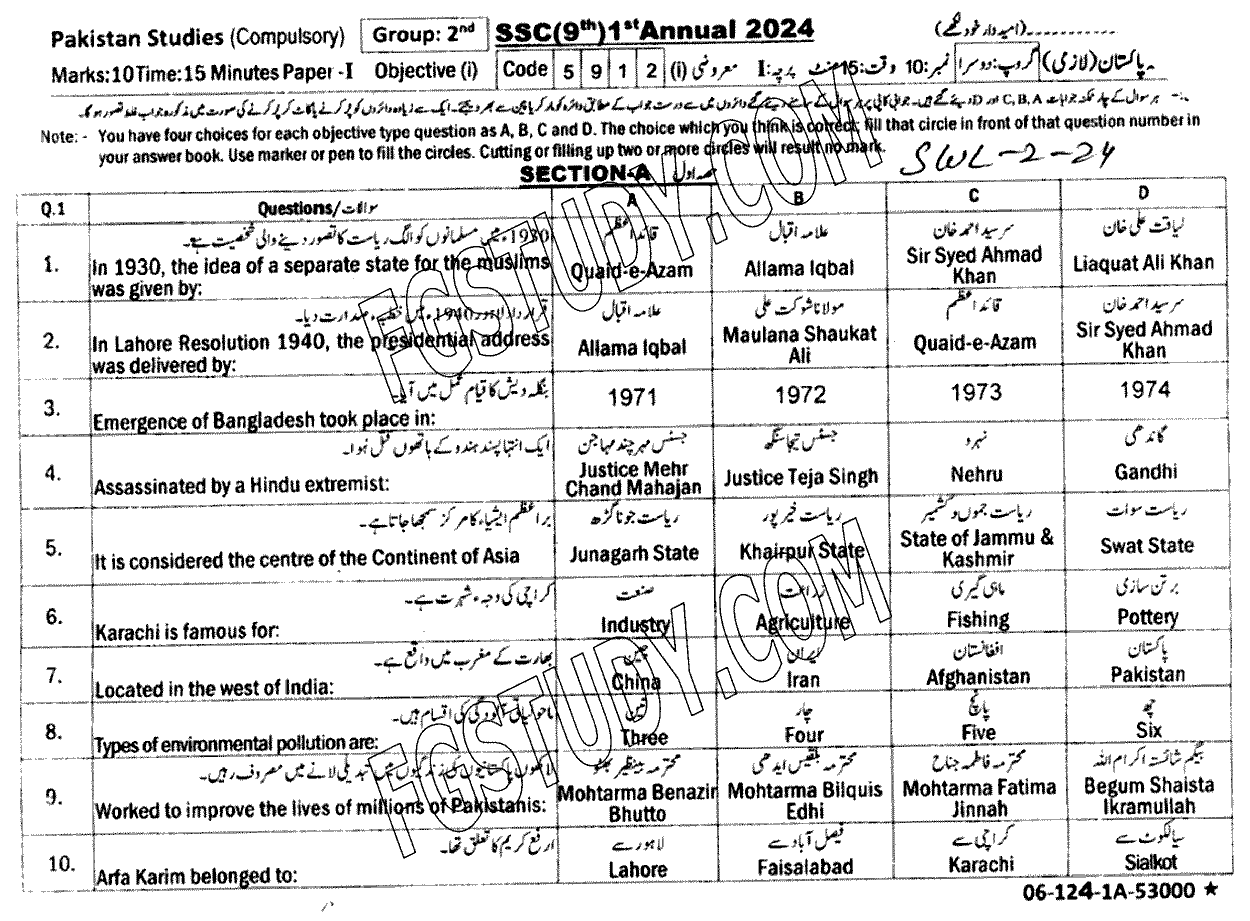 Pakistan Studies (Compulsory) Group: 2nd SSC(9th)1st Annual 2024 (امیدوار خود لکھے)............
Marks:10Time:15 Minutes Paper -I Objective (i) Code 5 9 1 2 (i) معروضی پرچہ:I وقت:15منٹ نمبر:10 گروپ:دوسرا پاکستان(لازمی)
Note: - You have four choices for each objective type question as A, B, C and D. The choice which you think is correct; fill that circle in front of that question number in
your answer book. Use marker or pen to fill the circles. Cutting or filling up two or more circles will result no mark. SWL-2-24
SECTION-A حصہ اول
Q.1 Questions/سوالات A B C D
1. 1930ء میں مسلمانوں کو الگ ریاست کا تصور دینے والی شخصیت ہے۔ قائداعظم علامہ اقبال سرسید احمد خان لیاقت علی خان
In 1930, the idea of a separate state for the muslims was given by: Quaid-e-Azam Allama Iqbal Sir Syed Ahmad Khan Liaquat Ali Khan
2. قرارداد لاہور 1940ء میں خطبہء صدارت دیا۔ علامہ اقبال مولانا شوکت علی قائداعظم سرسید احمد خان
In Lahore Resolution 1940, the presidential address was delivered by: Allama Iqbal Maulana Shaukat Ali Quaid-e-Azam Sir Syed Ahmad Khan
3. بنگلہ دیش کا قیام عمل میں آیا۔
Emergence of Bangladesh took place in: 1971 1972 1973 1974
4. ایک انتہا پسند ہندو کے ہاتھوں قتل ہوا۔ جسٹس مہر چند مہاجن جسٹس تیجا سنگھ نہرو گاندھی
Assassinated by a Hindu extremist: Justice Mehr Chand Mahajan Justice Teja Singh Nehru Gandhi
5. براعظم ایشیاء کا مرکز سمجھا جاتا ہے۔ ریاست جوناگڑھ ریاست خیرپور ریاست جموں و کشمیر ریاست سوات
It is considered the centre of the Continent of Asia Junagarh State Khairpur State State of Jammu & Kashmir Swat State
6. کراچی کی وجہء شہرت ہے۔ صنعت زراعت ماہی گیری برتن سازی
Karachi is famous for: Industry Agriculture Fishing Pottery
7. بھارت کے مغرب میں واقع ہے۔ چین ایران افغانستان پاکستان
Located in the west of India: China Iran Afghanistan Pakistan
8. ماحولیاتی آلودگی کی اقسام ہیں۔ تین چار پانچ چھ
Types of environmental pollution are: Three Four Five Six
9. لاکھوں پاکستانیوں کی زندگیوں میں تبدیلی لانے میں مصروف رہیں۔ محترمہ بینظیر بھٹو محترمہ بلقیس ایدھی محترمہ فاطمہ جناح بیگم شائستہ اکرام اللہ
Worked to improve the lives of millions of Pakistanis: Mohtarma Benazir Bhutto Mohtarma Bilquis Edhi Mohtarma Fatima Jinnah Begum Shaista Ikramullah
10. ارفع کریم کا تعلق تھا۔ لاہور سے فیصل آباد سے کراچی سے سیالکوٹ سے
Arfa Karim belonged to: Lahore Faisalabad Karachi Sialkot
06-124-1A-53000 ★
FGSTUDY.COM
FGSTUDY.COM